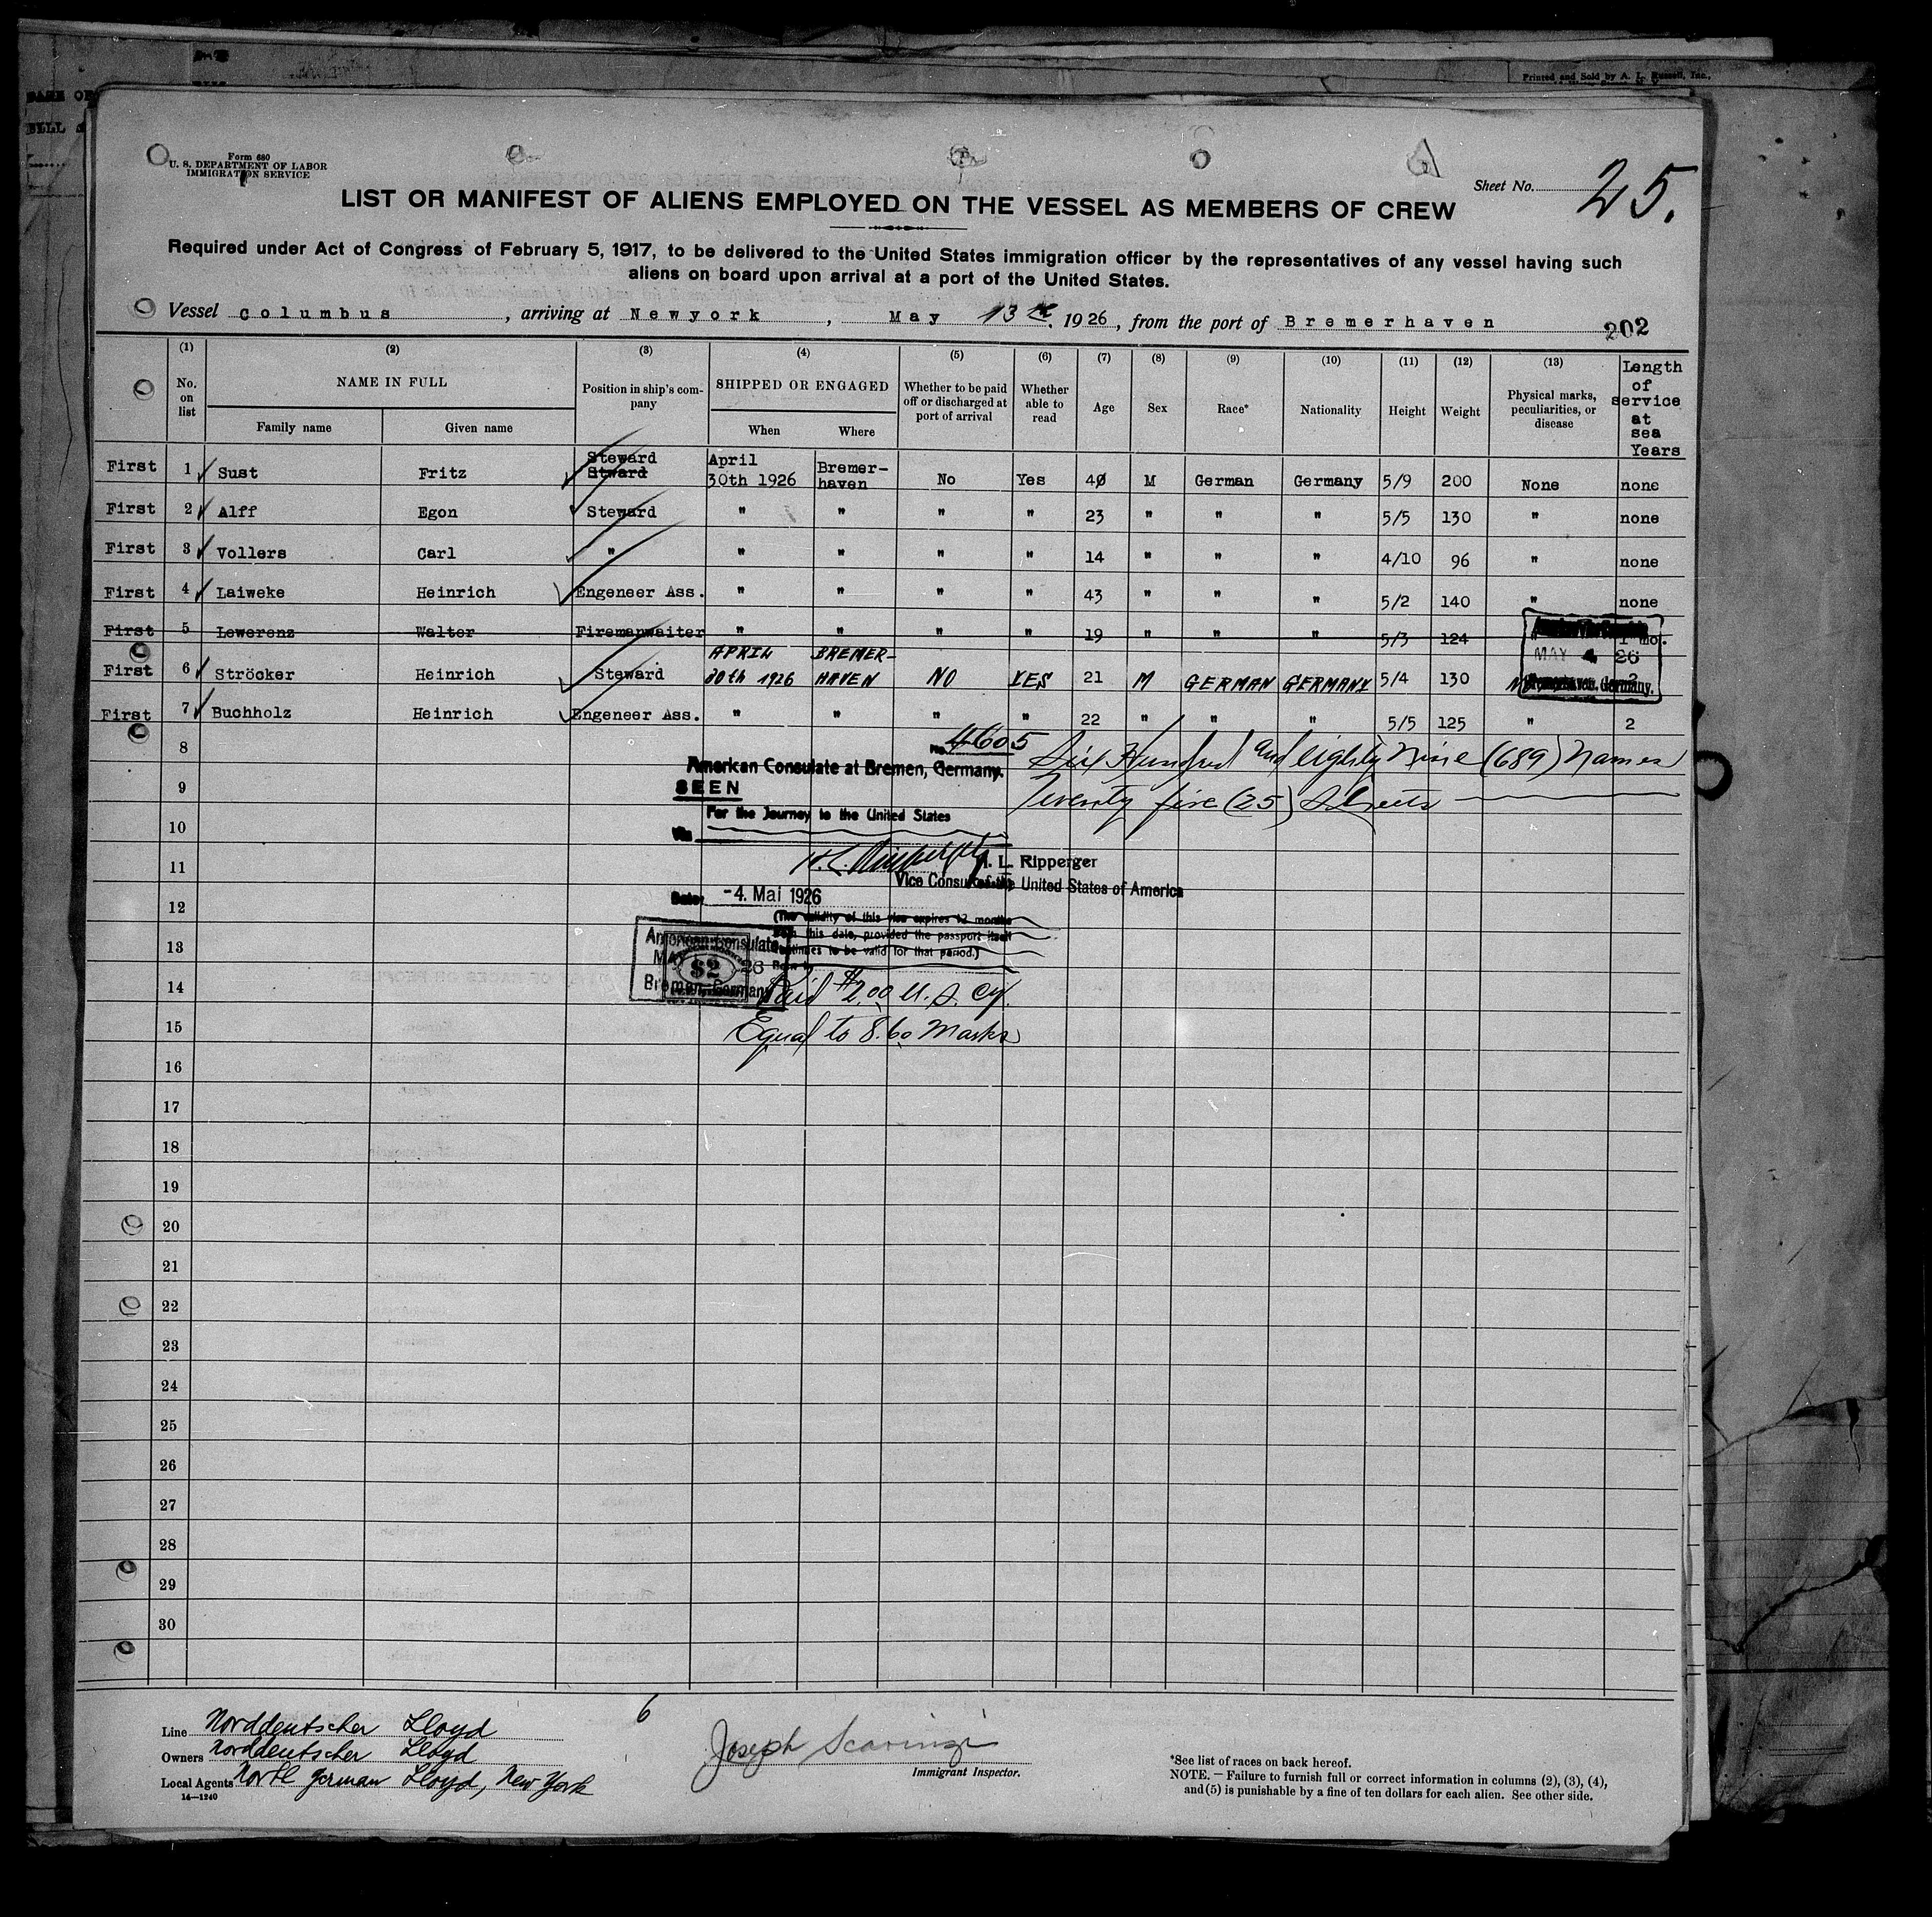 Printed and Sold by A. L. Russell, Inc.,
Form 680
U. S. DEPARTMENT OF LABOR
IMMIGRATION SERVICE
Sheet No. 25.
LIST OR MANIFEST OF ALIENS EMPLOYED ON THE VESSEL AS MEMBERS OF CREW
Required under Act of Congress of February 5, 1917, to be delivered to the United States immigration officer by the representatives of any vessel having such
aliens on board upon arrival at a port of the United States.
Vessel Columbus, arriving at Newyork, May 13th, 1926, from the port of Bremerhaven
202
(1) (2) (3) (4) (5) (6) (7) (8) (9) (10) (11) (12) (13)
No. on list
NAME IN FULL
Family name Given name
Position in ship's company
SHIPPED OR ENGAGED
When Where
Whether to be paid off or discharged at port of arrival
Whether able to read
Age Sex Race* Nationality Height Weight
Physical marks, peculiarities, or disease
Length of service at sea Years
First 1 Sust Fritz Steward Stward April 30th 1926 Bremer-haven No Yes 40 M German Germany 5/9 200 None none
First 2 Alff Egon Steward " " " " 23 " " " 5/5 130 " none
First 3 Vollers Carl " " " " " 14 " " " 4/10 96 " none
First 4 Laiweke Heinrich Engeneer Ass. " " " " 43 " " " 5/2 140 " none
First 5 Lewerenz Walter Firemanwaiter " " " " 19 " " " 5/3 124 " 1 mo.
First 6 Ströcker Heinrich Steward APRIL 30th 1926 BREMER-HAVEN NO YES 21 M GERMAN GERMANY 5/4 130 2
First 7 Buchholz Heinrich Engeneer Ass. " " " " 22 " " " 5/5 125 " 2
MAY 4 26
Bremerhaven, Germany.
8
No. 4605
Six Hundred and eighty Nine (689) Names
American Consulate at Bremen, Germany.
9
SEEN
Twenty five (25) Sheets
For the Journey to the United States
10
Via
11
H. L. Ripperger
Vice Consul of the United States of America
12
Date: -4. Mai 1926
(The validity of this visa expires 12 months
from this date, provided the passport itself
continues to be valid for that period.)
13
American Consulate
MAY 26
$2
Bremen, Germany
14
Paid $2.00 U. S. Cy.
15
Equal to 8.60 Marks
16
17
18
19
20
21
22
23
24
25
26
27
28
29
30
6
Line Norddeutscher Lloyd
Owners Norddeutscher Lloyd
Local Agents North German Lloyd, New York
14—1240
Joseph Scarinzi
Immigrant Inspector.
*See list of races on back hereof.
NOTE. — Failure to furnish full or correct information in columns (2), (3), (4),
and (5) is punishable by a fine of ten dollars for each alien. See other side.